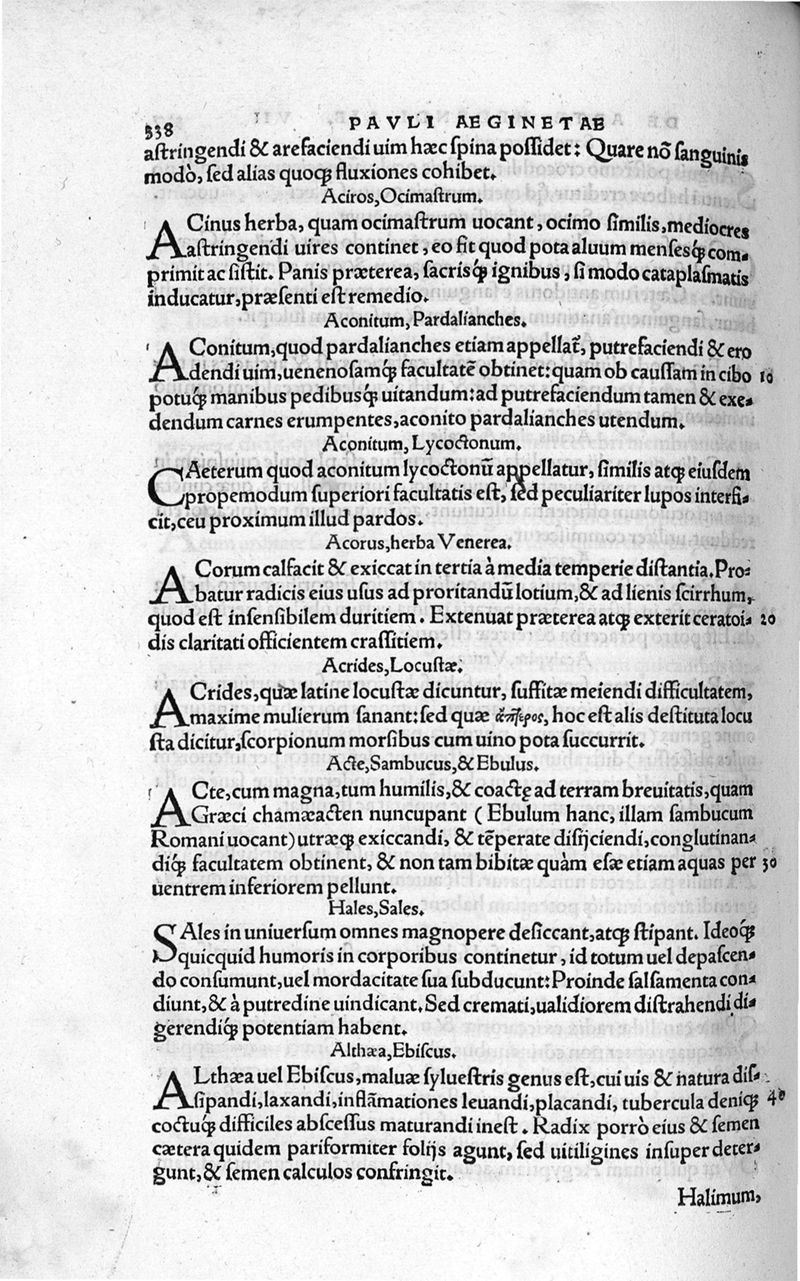 338 PAVLI AEGINETAE
aſtringendi & arefaciendi uim hæc ſpina poſſidet: Quare nō ſanguinis
modò, ſed alias quoqꝫ fluxiones cohibet.
Aciros, Ocimaſtrum.
ACinus herba, quam ocimaſtrum uocant, ocimo ſimilis, mediocres
aſtringendi uires continet, eo fit quod pota aluum menſesqꝫ com-
primit ac ſiſtit. Panis præterea, ſacrisqꝫ ignibus, ſi modo cataplaſmatis
inducatur, præſenti eſt remedio.
Aconitum, Pardalianches.
AConitum, quod pardalianches etiam appellat̃, putrefaciendi & ero
dendi uim, uenenoſamqꝫ facultatē obtinet: quam ob cauſſam in cibo 10
potuqꝫ manibus pedibusqꝫ uitandum: ad putrefaciendum tamen & exe-
dendum carnes erumpentes, aconito pardalianches utendum.
Aconitum, Lycoctonum.
CAeterum quod aconitum lycoctonū appellatur, ſimilis atqꝫ eiuſdem
propemodum ſuperiori facultatis eſt, ſed peculiariter lupos interfi-
cit, ceu proximum illud pardos.
Acorus, herba Venerea.
ACorum calfacit & exiccat in tertia à media temperie diſtantia. Pro-
batur radicis eius uſus ad proritandū lotium, & ad lienis ſcirrhum,
quod eſt inſenſibilem duritiem. Extenuat præterea atqꝫ exterit ceratoi- 20
dis claritati officientem craſſitiem.
Acrides, Locuſtæ.
ACrides, quæ latine locuſtæ dicuntur, ſuffitæ meiendi difficultatem,
maxime mulierum ſanant: ſed quæ ἄπτερος, hoc eſt alis deſtituta locu
ſta dicitur, ſcorpionum morſibus cum uino pota ſuccurrit.
Acte, Sambucus, & Ebulus.
ACte, cum magna, tum humilis, & coactę ad terram breuitatis, quam
Græci chamæacten nuncupant (Ebulum hanc, illam ſambucum
Romani uocant) utræqꝫ exiccandi, & tēperate diſijciendi, conglutinan-
diqꝫ facultatem obtinent, & non tam bibitæ quàm eſæ etiam aquas per 30
uentrem inferiorem pellunt.
Hales, Sales.
SAles in uniuerſum omnes magnopere deſiccant, atqꝫ ſtipant. Ideoqꝫ
quicquid humoris in corporibus continetur, id totum uel depaſcen-
do conſumunt, uel mordacitate ſua ſubducunt: Proinde ſalſamenta con-
diunt, & à putredine uindicant. Sed cremati, ualidiorem diſtrahendi di-
gerendiqꝫ potentiam habent.
Althæa, Ebiſcus.
ALthæa uel Ebiſcus, maluæ ſylueſtris genus eſt, cui uis & natura diſ-
ſipandi, laxandi, inflāmationes leuandi, placandi, tubercula deniqꝫ 40
coctuqꝫ difficiles abſceſſus maturandi ineſt. Radix porrò eius & ſemen
cætera quidem pariformiter folijs agunt, ſed uitiligines inſuper deter-
gunt, & ſemen calculos confringit.
Halimum,